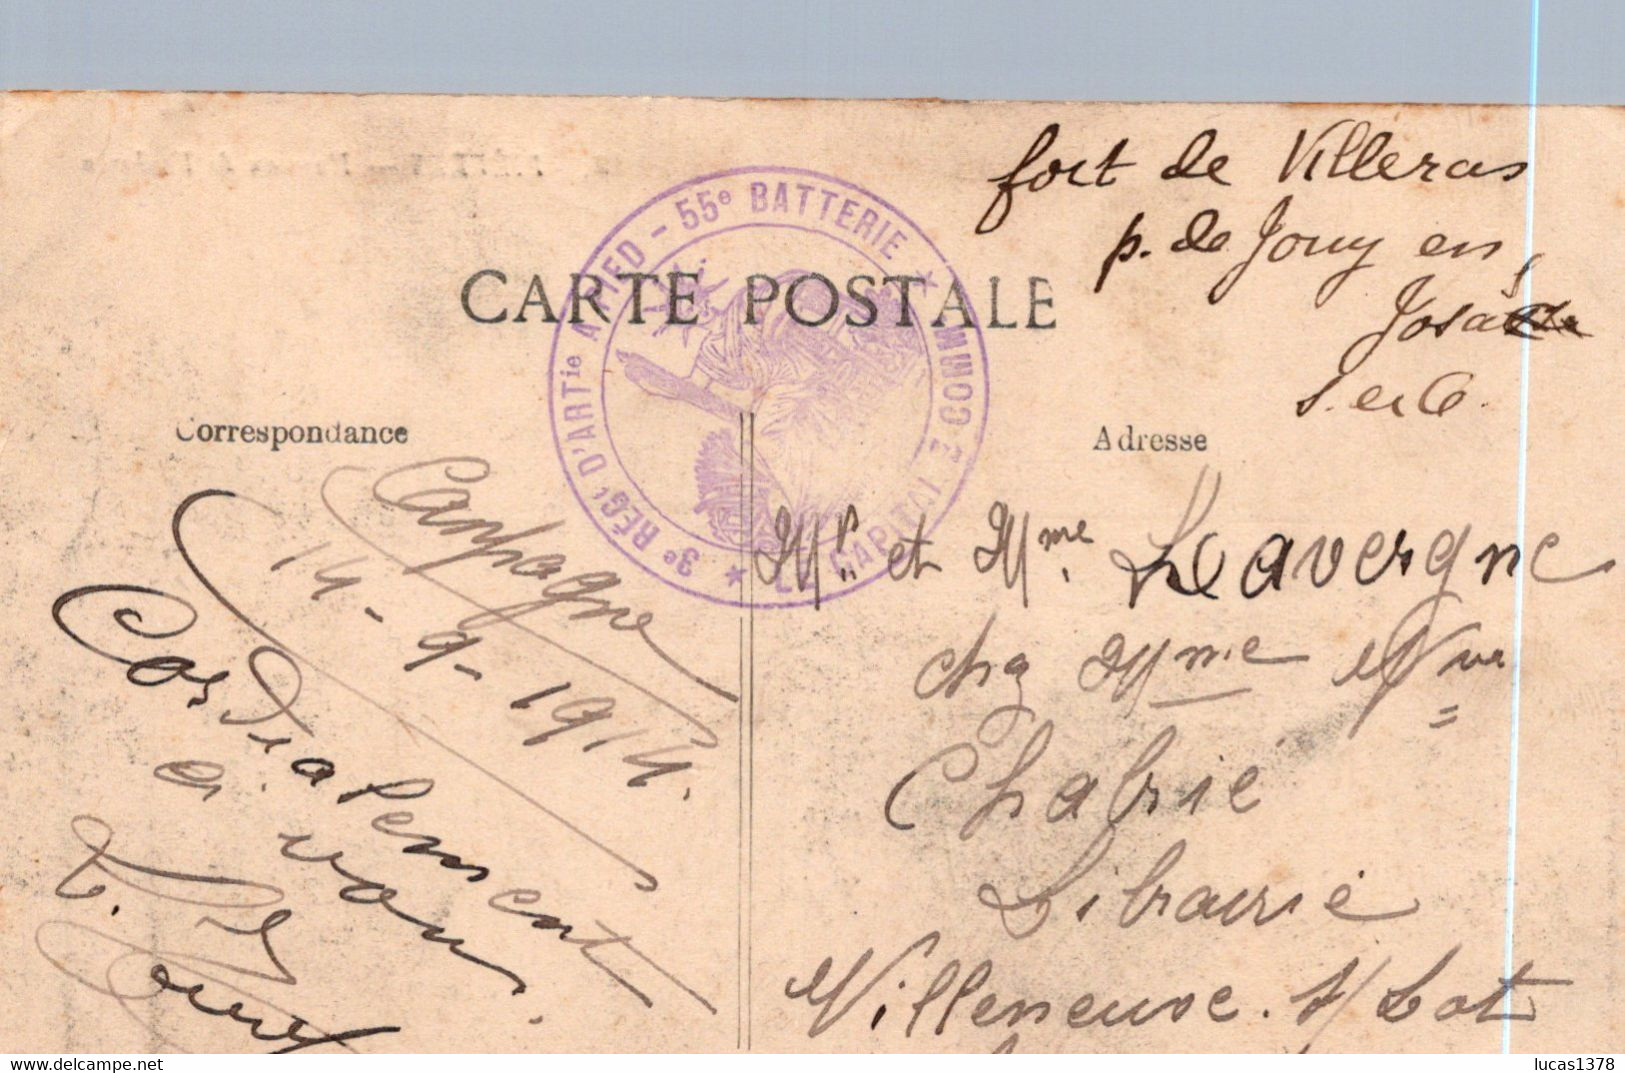 fort de Villeras
p. de Jouy en
Josas
S. et O.
CARTE POSTALE
3e RÉGt D'ARTie A PIED - 55e BATTERIE
LE CAPITAINE COMMt
Correspondance
Adresse
Campagne
14-9-1914.
Cordialement
à vous.
Mr. et Mme. Lavergne
chz Mme Vve
Chabrié
Librairie
Villeneuve. s/Lot
lucas1378